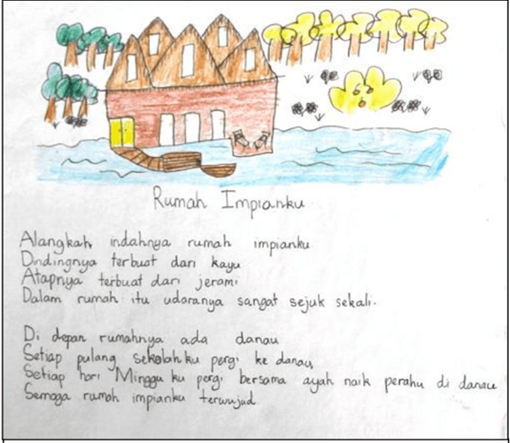 Rumah Impianku
Alangkah indahnya rumah impianku
Dindingnya terbuat dari kayu
Atapnya terbuat dari jerami
Dalam rumah itu udaranya sangat sejuk sekali.
Di depan rumahnya ada danau
Setiap pulang sekolah ku pergi ke danau,
Setiap hari Minggu ku pergi bersama ayah naik perahu di danau
Semoga rumah impianku terwujud